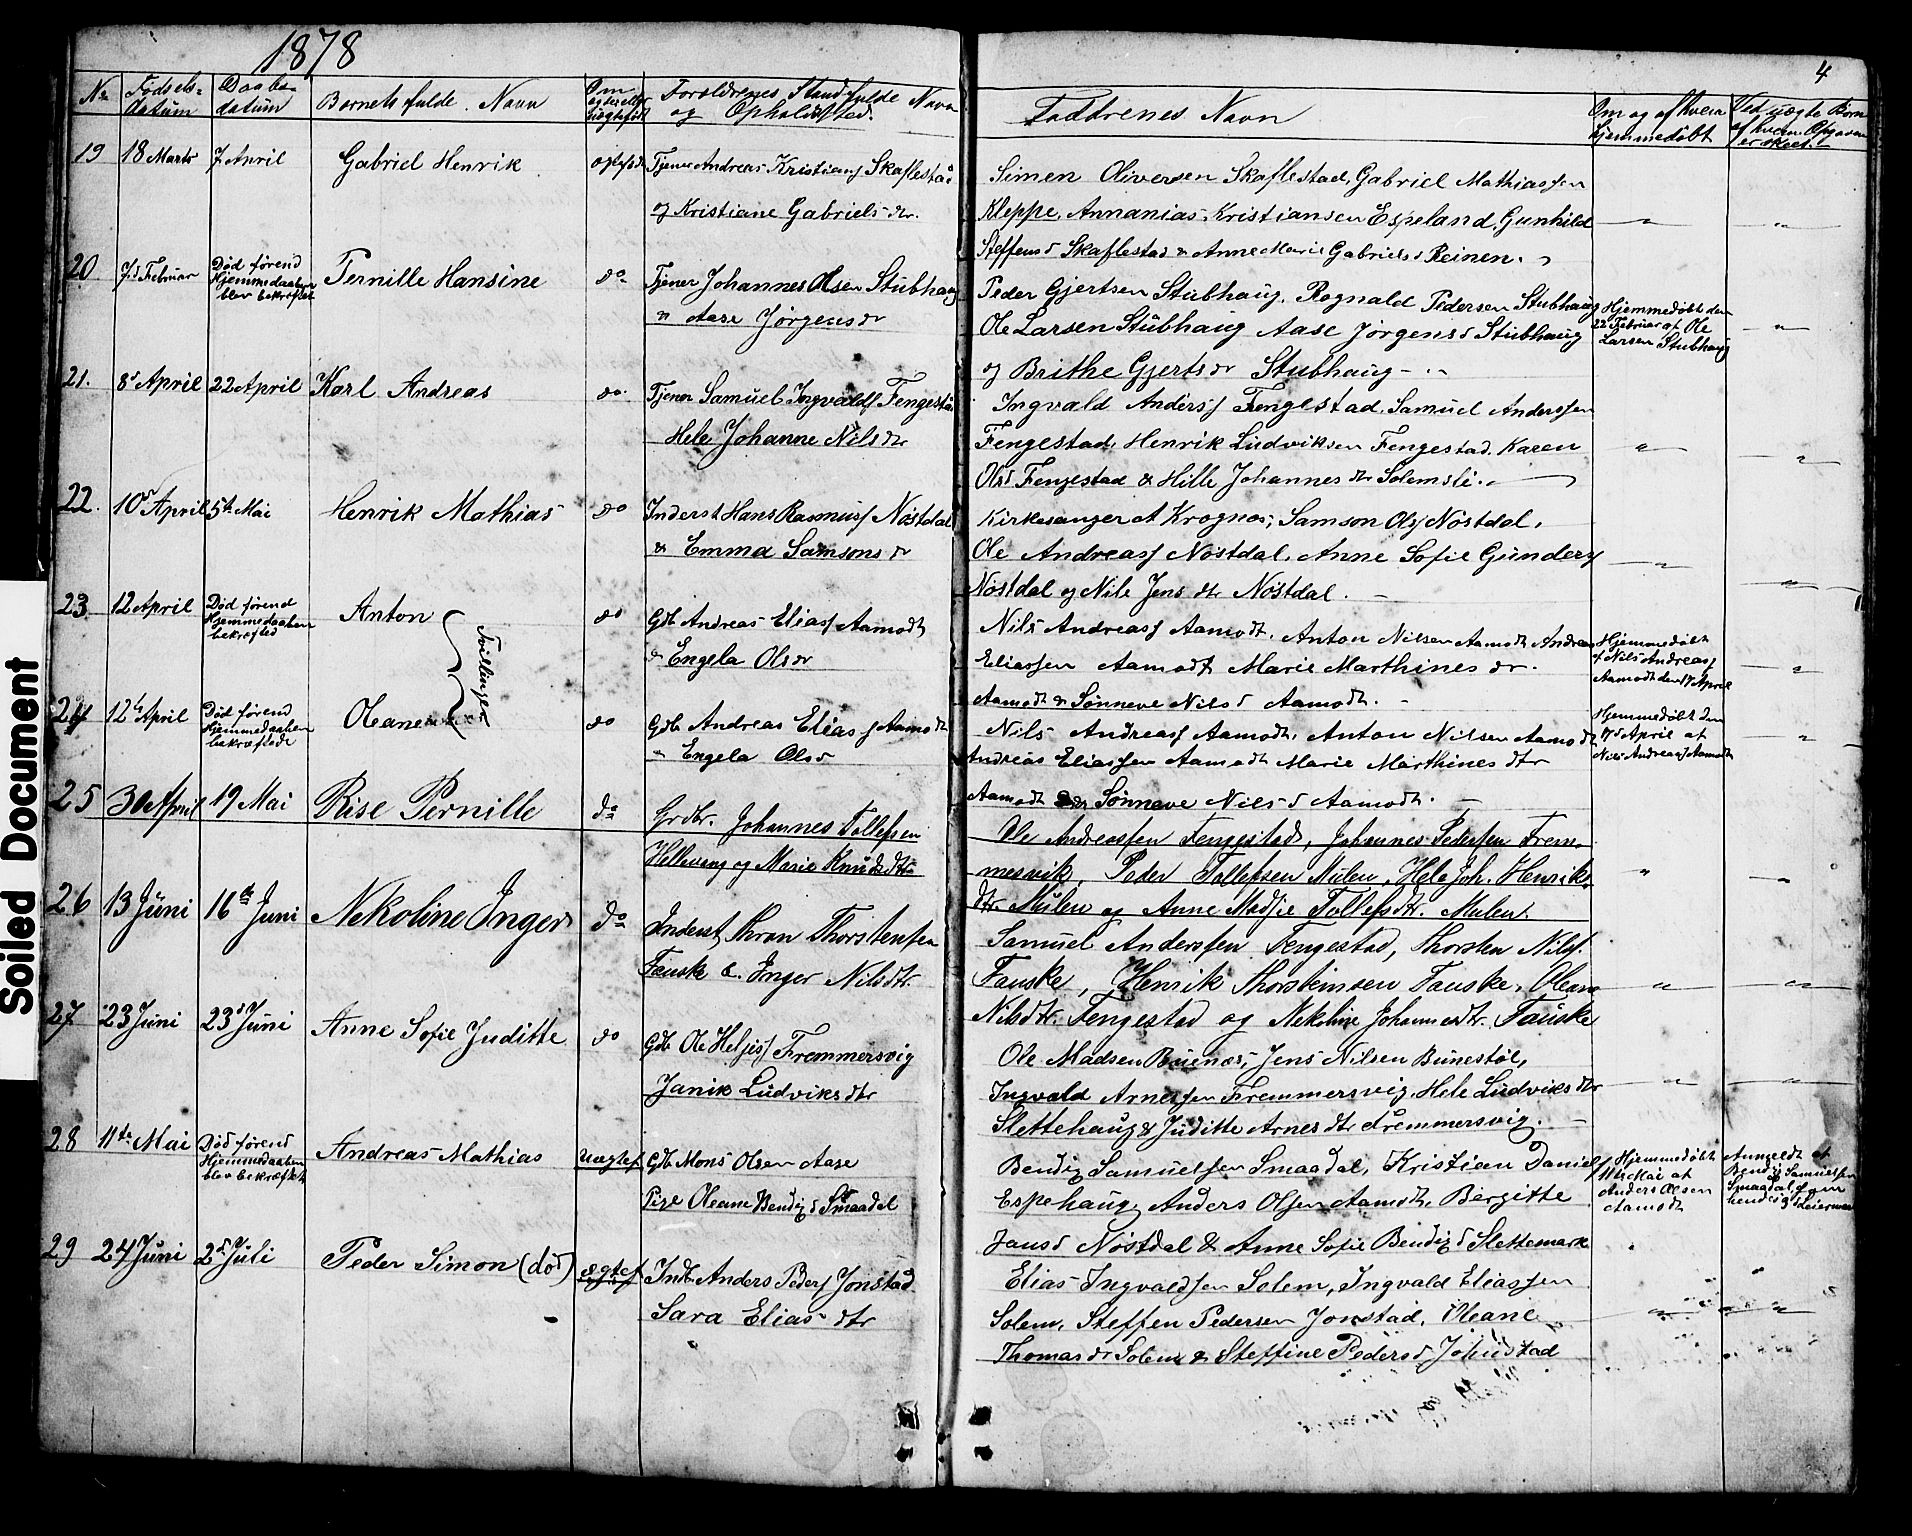 1878
4
No Fødsels-datum Daabs-datum Barnets fulde Navn Om ægte eller uægtefødt Forældrenes Stand fulde Navn og Opholdssted.
Faddrenes Navn Om og af hvem hjemmedøbt Ved uægte Børn af hvem Opgaven er skeet.
19 18 Marts 7 April Gabriel Henrik ægtefødt Tjener Andreas Kristians Skaflestad
og Kristiane Gabriels dr.
Simen Oliversen Skaflestad, Gabriel Mathiassen
Kleppe, Annanias Kristiansen Espeland, Gunhild
Steffens d Skaflestad & Anne Marie Gabriels d Reinen.
20 7d Februar Død førend Hjemmedaaben blev bekræftet Pernille Hansine do Tjener Johannes Olsen Stubhaug
& Aase Jørgens dr
Peder Gjertsen Stubhaug, Rognald Pedersen Stubhaug
Ole Larsen Stubhaug Aase Jørgens d Stubhaug
og Brithe Gjerts dr Stubhaug
Hjemmedøbt den
22 Februar at Ole
Larsen Stubhaug
21. 8d April 22 April Karl Andreas do Tjener Samuel Ingvalds Fengestad
Hele Johanne Nils dr
Ingvald Anders Fengestad, Samuel Anderssen
Fengestad, Henrik Ludviksen Fengestad, Karen
Ols d Fengestad & Hille Johannes dr Solemsli.
22. 10d April 5te Mai Henrik Mathias do Inderst Hans Rasmuss Nøstdal
& Emma Samsons dr
Kirkesanger at Krognæs, Samson Ols Nøstdal,
Ole Andreass Nøstdal, Anne Sofie Gunders
Nøstdal og Nile Jens dtr Nøstdal.
23 12 April Død førend Hjemmedaaben bekræfted Anton Tvillinger do Gdb Andreas Eliass Aamodt
& Engela Ols dr
Nils Andreass Aamodt, Anton Nilsen Aamodt Andreas
Eliassen Aamodt Marie Marthines dr.
Aamodt & Sønneve Nils d Aamodt.
Hjemmedøbt
af Nils Andreass
Aamodt den 17 April
24 12te April Død førend Hjemmedaaben bekræftede Oleane do Gdb Andreas Elias s Aamodt
Engela Ols d
Nils Andreass Aamodt, Anton Nilsen Aamodt
Andreas Eliassen Aamodt Marie Marthines dtr
Aamodt Sønneve Nils d Aamodt.
Hjemmedøbt den
17d April at
Nils Andreass Aamodt
25 30 April 19 Mai Rise Pernille do Grdbr. Johannes Tollefsen
Helleveng og Marie Knuds dtr
Ole Andreassen Fengestad, Johannes Pedersen Frem-
mesvik, Peder Tollefsen Mulen, Hele Joh. Henriks-
dtr. Mulen og Anne Madsje Tollefs dtr. Mulen.
26 13 Juni 16de Juni Nekoline Inger do Inderst Thron Thorstensen
Fauske & Inger Nils dtr.
Samuel Anderssen Fengestad, Thorsten Nilss.
Fauske, Henrik Thorsteinsen Fauske, Oleane
Nils dtr. Fengestad og Nekoline Johannes dtr. Fauske
27 23 Juni 23d Juni Anne Sofie Juditte do Gdb Ole Heljess Fremmersvig
Janik Ludviks dtr
Ole Madsen Buenæs, Jens Nilsen Bunestøl,
Ingvald Arnessen Fremmersvig, Hele Ludviks dtr
Slettehaug & Juditte Arnes dtr Fremmersvig.
28 11te Mai Død førend Hjemmedaaben blev bekræftet Andreas Mathias uægtef. Gdb Mons Olsen Aase
Pige Oleane Bendigs d Smaadal
Bendig Samuelsen Smaadal, Kristian Daniels
Espehaug, Anders Olsen Aamodt, Birgitte
Jans d Nøstdal & Anne Sofie Bendigs d Slettemark
Hjemmedøbt
11te Mai at
Anders Olsen
Aamodt
Anmeldt at
Bendig Samuelsen
Smaadal
29 24 Juni 2d Juli Peder Simon (død) ægtef Indr Anders Peders Jonstad
Sara Elias dtr
Elias Ingvaldsen Solem, Ingvald Eliassen
Solem, Steffen Pedersen Jonstad, Oleane
Thomas dr Solem & Steffine Peders d Johnstad
Soiled Document